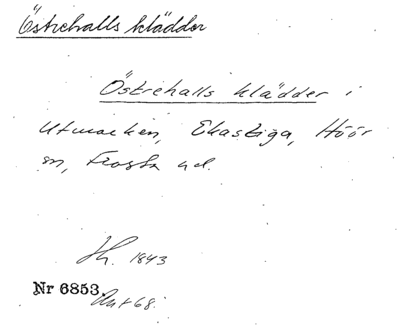 Östrehalls klädder
Östrehalls klädder i
Utmarken, Ekastiga, Höör
sn, Frosta hd.
Jh. 1843
Nr 6853
Akt 68.